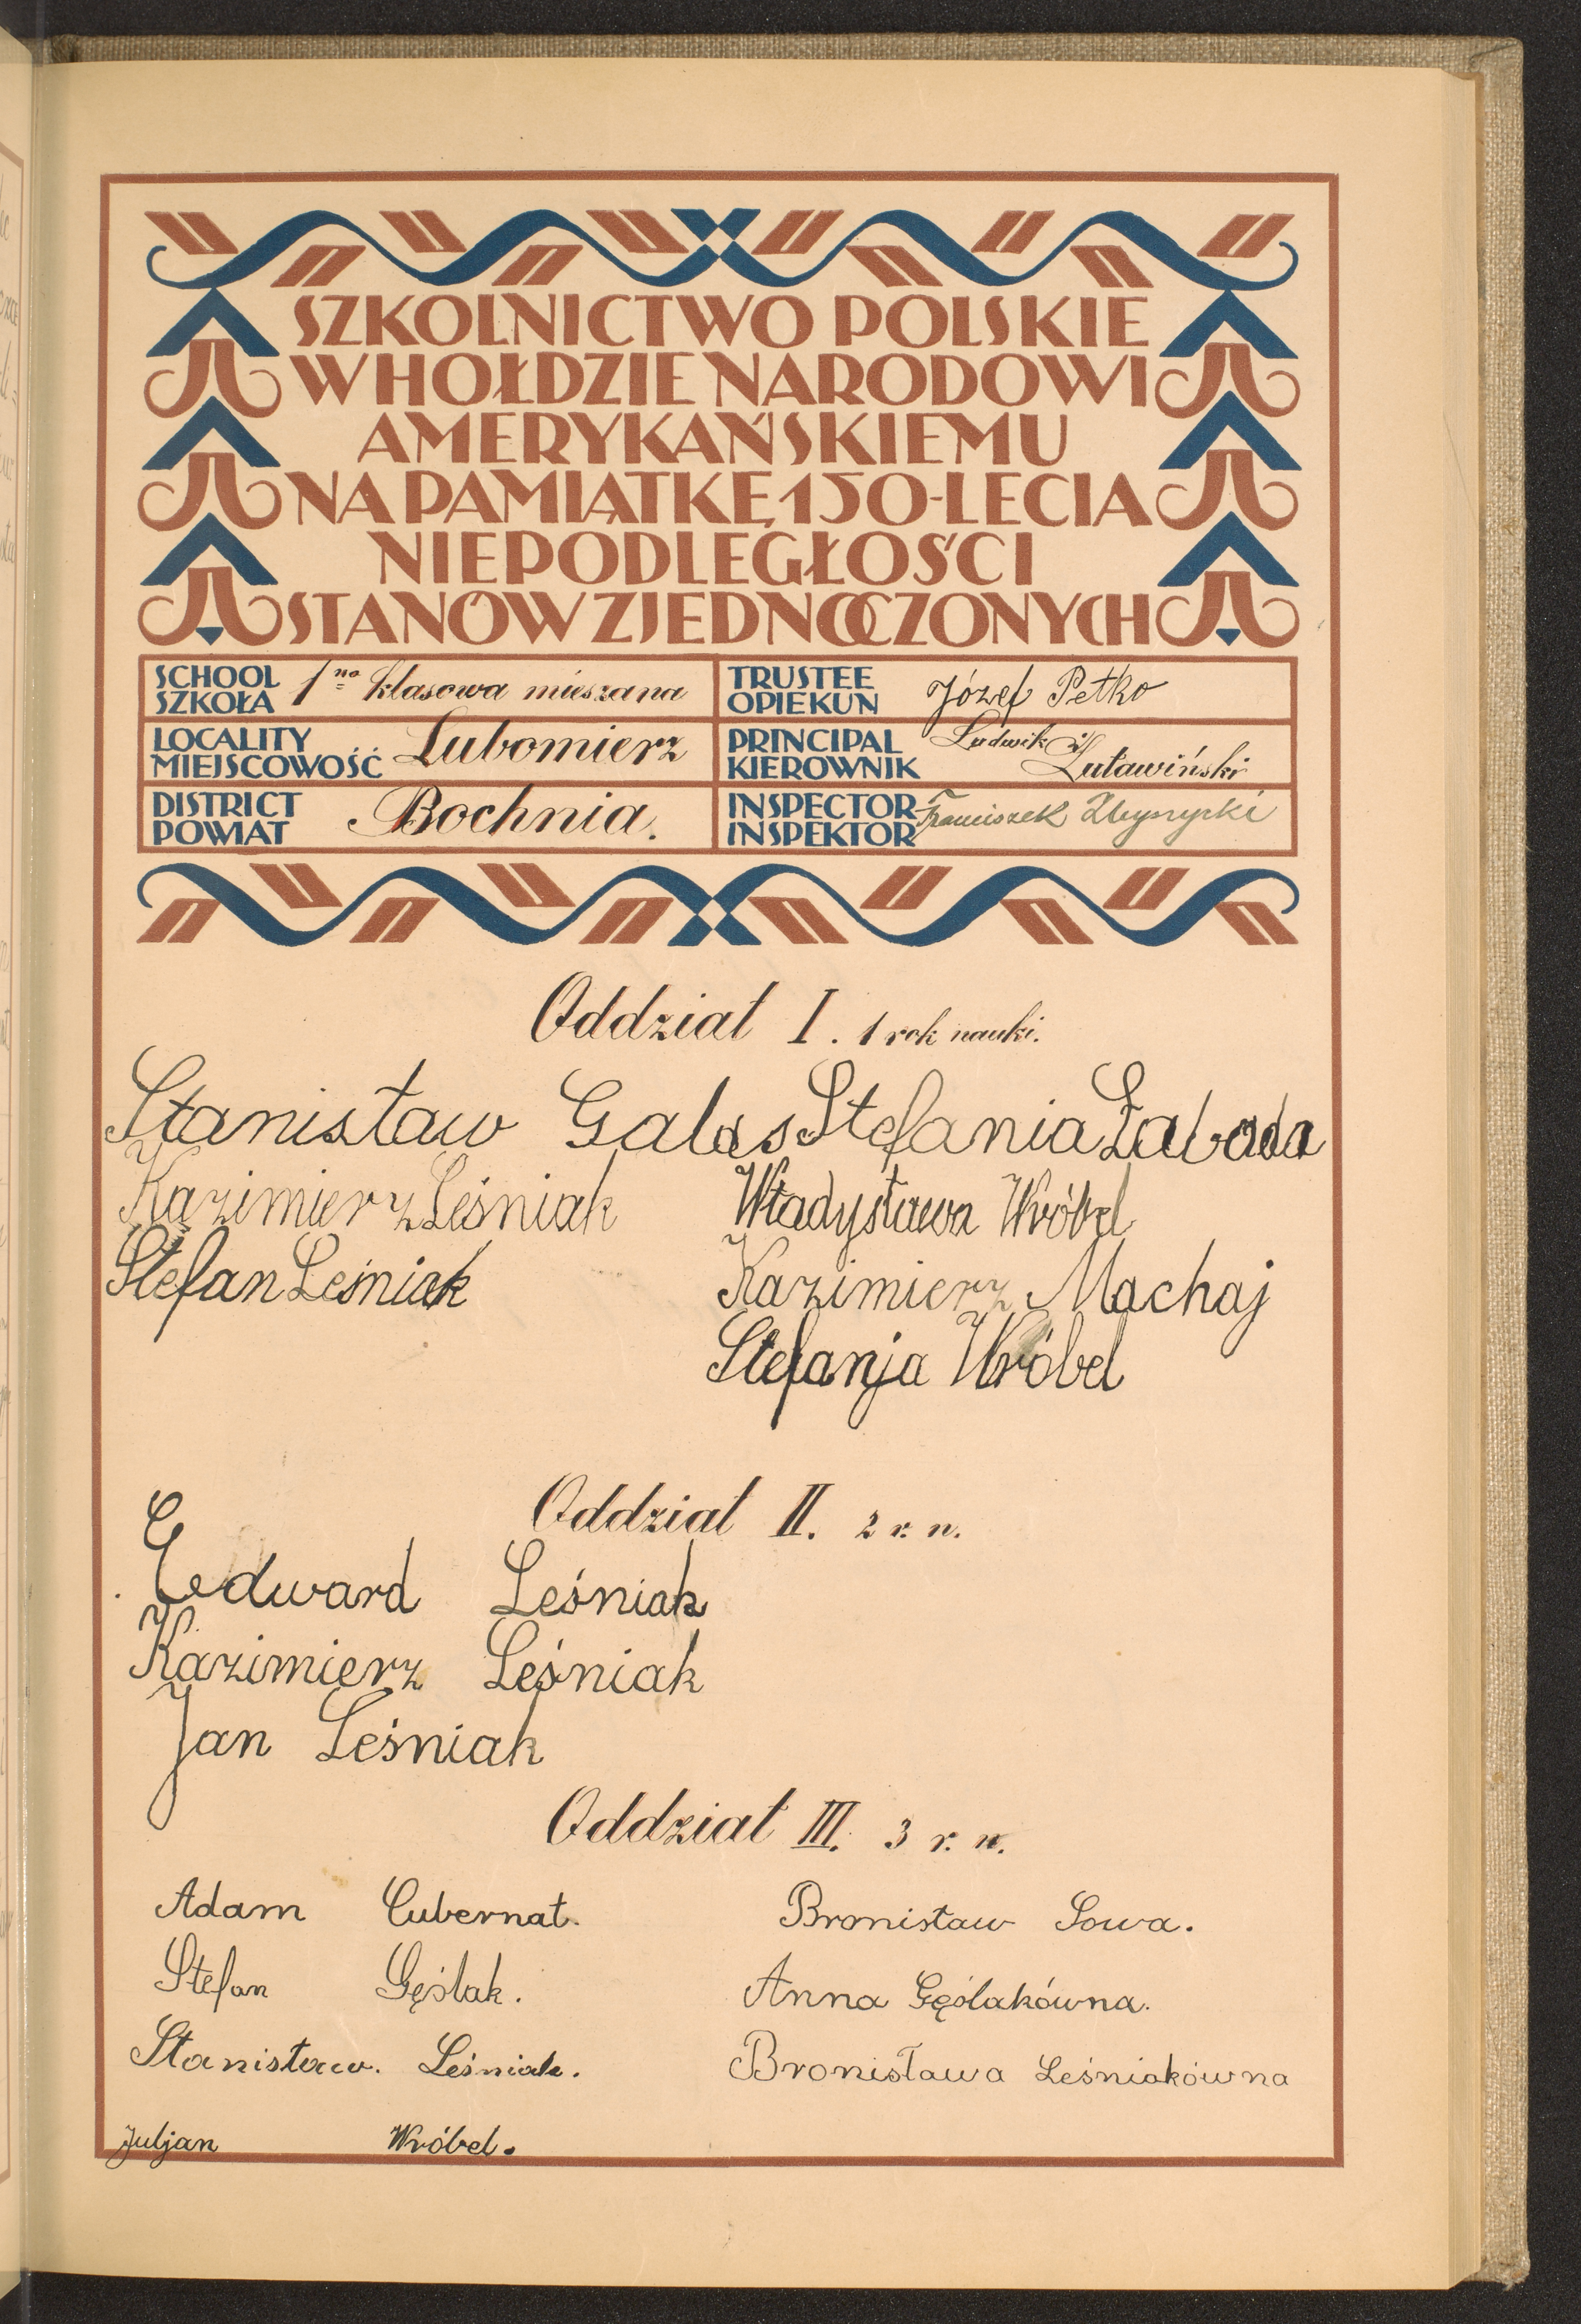 SZKOLNICTWO POLSKIE
W HOŁDZIE NARODOWI
AMERYKAŃSKIEMU
NA PAMIĄTKĘ 150-LECIA
NIEPODLEGŁOŚCI
STANÓW ZJEDNOCZONYCH
SCHOOL
SZKOŁA
1 no klasowa mieszana
TRUSTEE
OPIEKUN
Józef Petko
LOCALITY
MIEJSCOWOŚĆ
Lubomierz
PRINCIPAL
KIEROWNIK
Ludwik
Żuławiński
DISTRICT
POWIAT
Bochnia.
INSPECTOR
INSPEKTOR
Franciszek
Oddział I. 1 rok nauki.
Stanisław Galas Stefania
Kazimierz Leśniak Władysława Wróbel
Stefan Leśniak Kazimierz Machaj
Stefanja Wróbel
Oddział II. 2 r. n.
Edward Leśniak
Kazimierz Leśniak
Jan Leśniak
Oddział III. 3 r. n.
Adam Cubernat. Bronisław Sowa.
Stefan Gęślak. Anna Gęślakówna.
Stanisław. Leśniak. Bronisława Leśniakówna
Juljan Wróbel.